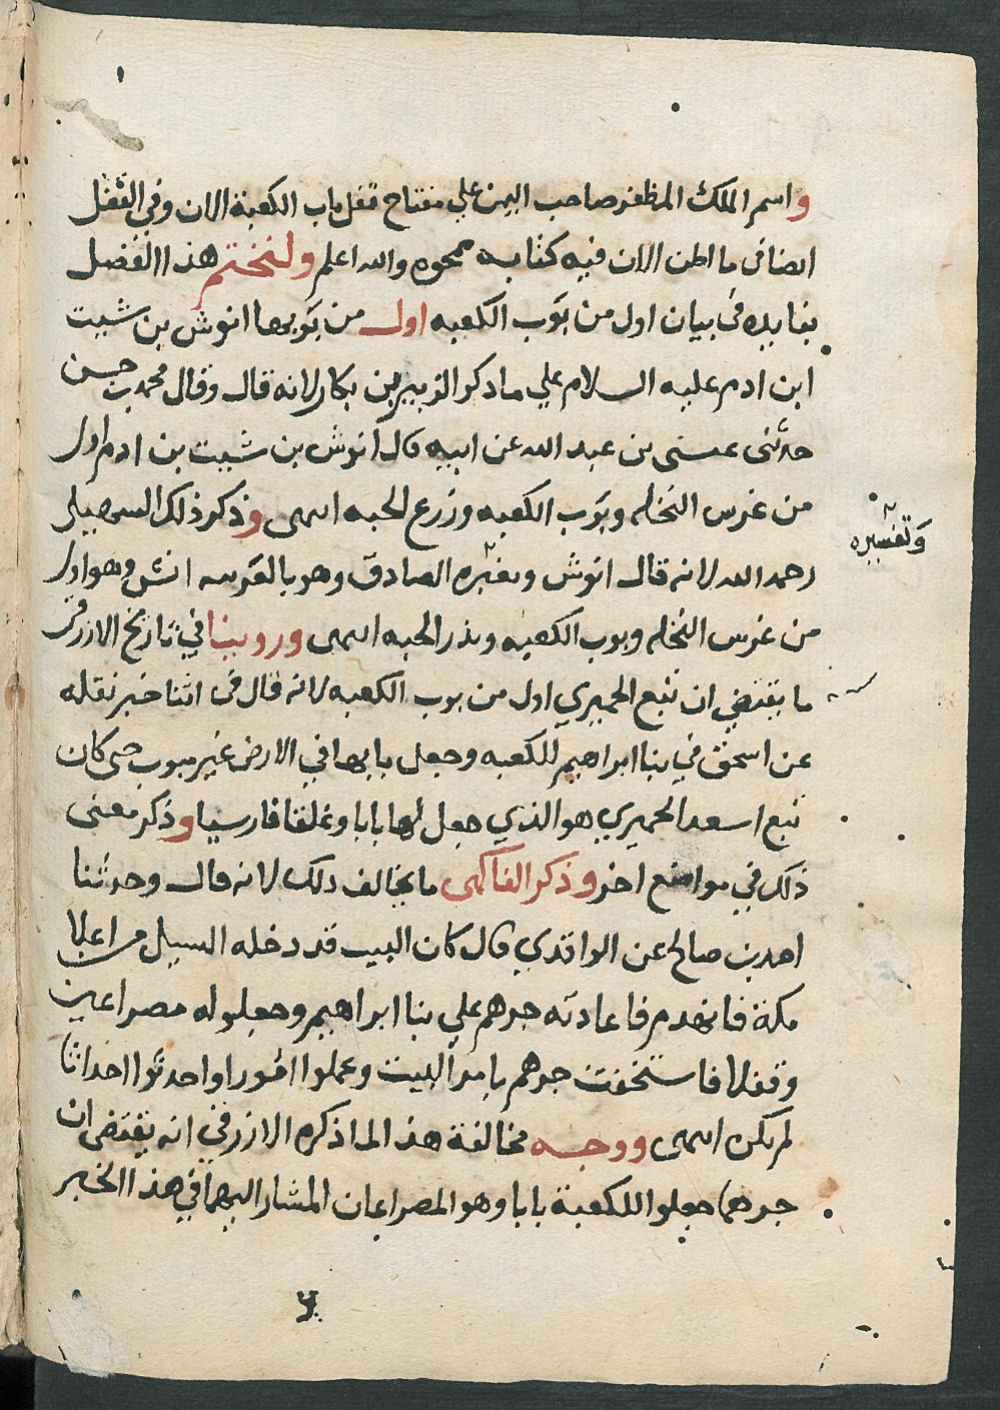 واسم الملك المظفر صاحب اليمن علي مفتاح قفل باب الكعبة الان وفي القفل
ايضا في ما اظن الان فيه كتابه ممحوه والله اعلم ولنختم هذا الفصل
بفايده في بيان اول من بوب الكعبه اول من بوبها انوش بن شيث
ابن ادم عليه السلام علي ما ذكر الزبير بن بكار لانه قال وقال محمد بن حسن
حدثني عيسى بن عبد الله عن ابيه قال انوش بن شيث بن ادم اول
من غرس النخله وبوب الكعبه وزرع الحبه انتهى وذكر ذلك السهيلي
وتفسيره
رحمه الله لانه قال انوش وتفسيره الصادق وهو بالعربيه انش وهو اول
من غرس النخله وبوب الكعبه وبذر الحبه انتهى وروينا في تاريخ الازرقي
ما يقتضي ان تبع الحميري اول من بوب الكعبه لانه قال في اثنا خبر نقله
عن اسحق في بنا ابراهيم للكعبه وجعل بابها في الارض غير مبوب حتى كان
تبع اسعد الحميري هو الذي جعل لها بابا وغلقا فارسيا وذكر معنى
ذلك في مواضع اخر وذكر الفاكهى ما يخالف ذلك لانه قال وحدثنا
احمد بن صالح عن الواقدي قال كان البيت قد دخله السيل من اعلا
مكة فانهدم فاعادته جرهم علي بنا ابراهيم وجعلو له مصراعين
وقفلا فاستخفت جرهم بامر البيت وعملوا امورا واحدثوا احداثا
لم تكن انتهى ووجه مخالفة هذا لما ذكره الازرقي انه يقتضى ان
جرهما جعلوا للكعبة بابا وهو المصراعان المشار اليهما في هذا الخبر